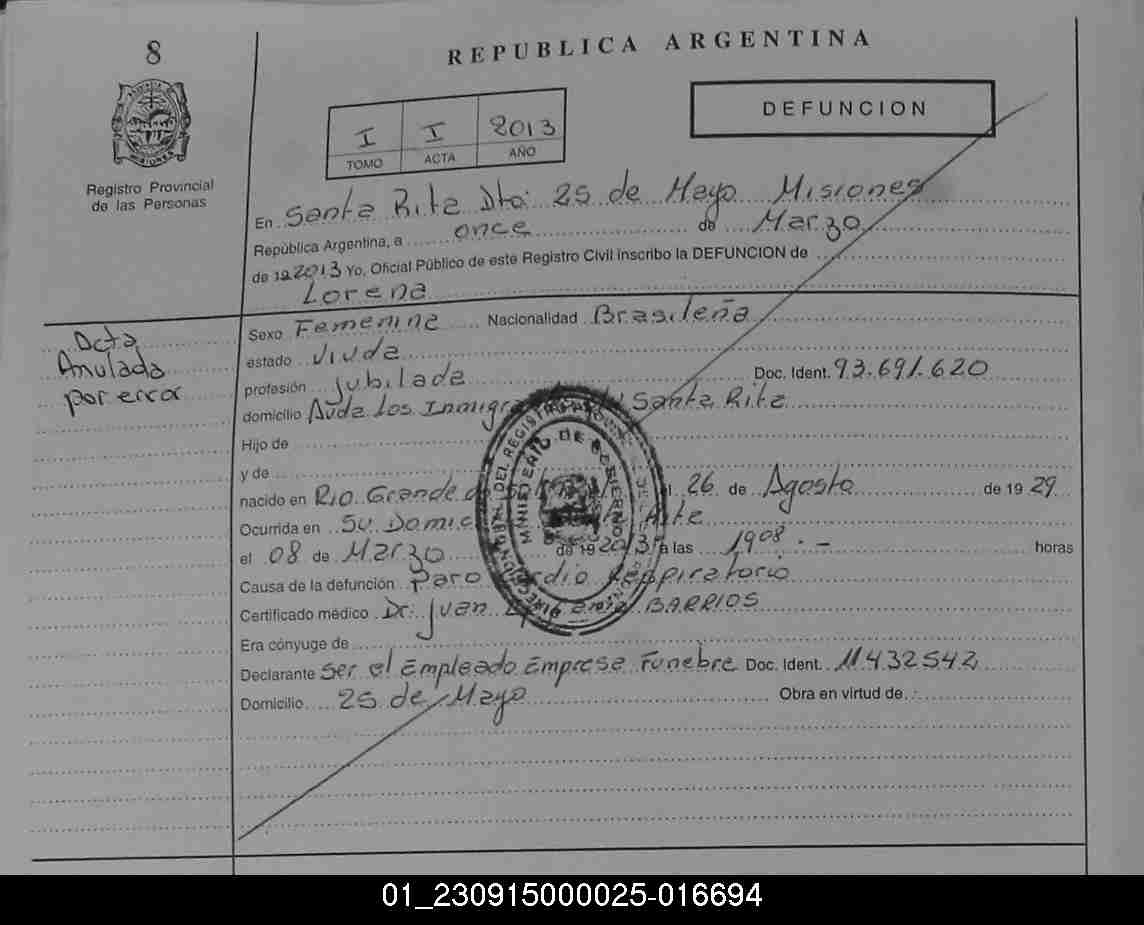 8
REPUBLICA ARGENTINA
DEFUNCION
I I 2013
TOMO ACTA AÑO
Registro Provincial
de las Personas
En Santa Rita Dto: 25 de Mayo Misiones
República Argentina, a once de Marzo
de 19 2013 Yo, Oficial Público de este Registro Civil inscribo la DEFUNCION de
Lorena
Acta
Anulada
por error
Sexo Femenine Nacionalidad Brasileña
estado Viuda
profesión jubilada Doc. Ident. 93.691.620
domicilio Avda Los Santa Rita
Hijo de
y de
nacido en Rio Grande el 26 de Agosto de 19 29
Ocurrida en Su
el 08 de Marzo de 19 2013 a las 1908.- horas
Causa de la defunción Paro Respiratorio
Certificado médico Dr. Juan BARRIOS
Era cónyuge de
Declarante Ser el Empleado Emprese Funebre Doc. Ident. 11.432542
Domicilio 25 de Mayo Obra en virtud de
MINISTERIO DE GOBIERNO
01_230915000025-016694